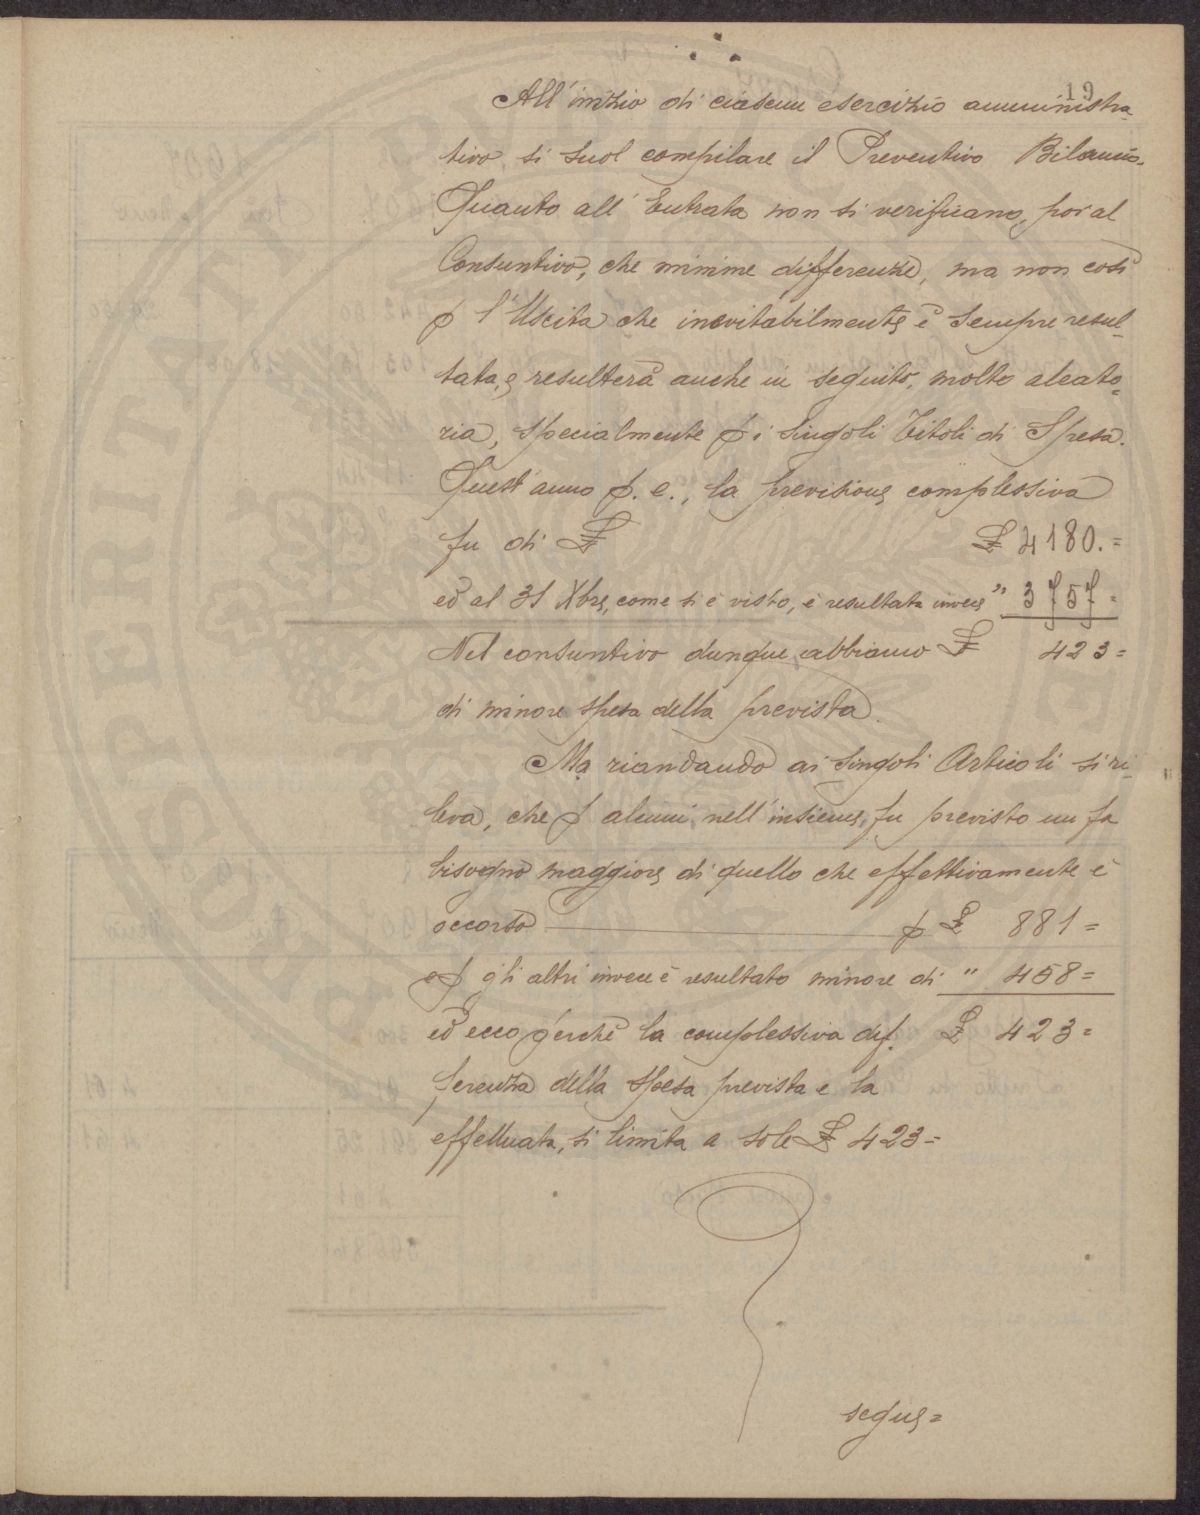 19
All'inizio di ciascun esercizio amministra-
tivo, si suol compilare il Preventivo Bilancio.
Quanto all'Entrata non si verificano, poi al
Consuntivo, che minime differenze, ma non così
p l'Uscita che inevitabilmente è sempre resul-
tata, e resulterà anche in seguito, molto aleato-
ria, specialmente p i singoli Titoli di Spesa.
Quest'anno p. e., la previsione complessiva
fu di £ £ 4180.=
ed al 31 Xbre, come si è visto, è resultata invece " 3757=
Nel consuntivo dunque abbiamo £ 423=
di minore spesa della prevista.
Ma riandando ai singoli Articoli si ri-
leva, che p alcuni, nell'insieme, fu previsto un fa
bisogno maggiore di quello che effettivamente è
occorso p £ 881=
e p gli altri invece è resultato minore di " 458=
ed ecco perchè la complessiva dif. £ 423=
ferenza della spesa prevista e la
effettuata, si limita a sole £ 423=
segue=